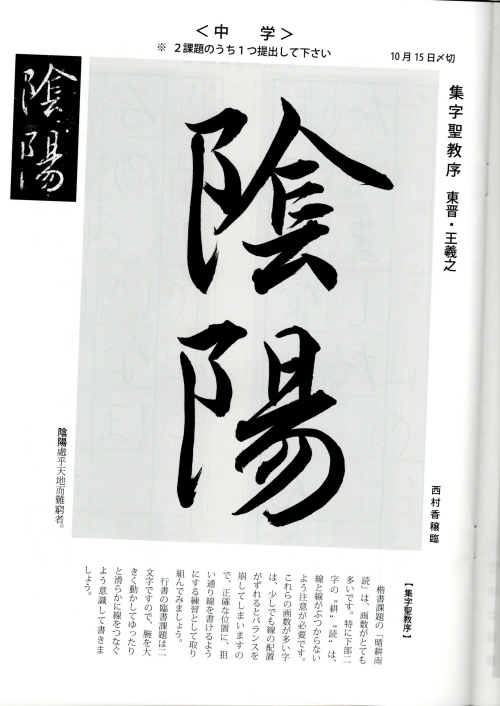 ＜中　学＞
※ ２課題のうち１つ提出して下さい
10月15日〆切
集字聖教序　東晋・王羲之
陰陽
陰陽
西村香穣臨
陰陽處乎天地而難窮者。
【集字聖教序】
楷書課題の「晴耕雨
読」は、画数がとても
多いです。特に下部二
字の〝耕〟〝読〟は、
線と線がぶつからない
よう注意が必要です。
これらの画数が多い字
は、少しでも線の配置
がずれるとバランスを
崩してしまいますの
で、正確な位置に、狙
い通り線を書けるよう
にする練習として取り
組んでみましょう。
行書の臨書課題は二
文字ですので、腕を大
きく動かしてゆったり
と滑らかに線をつなぐ
よう意識して書きま
しょう。